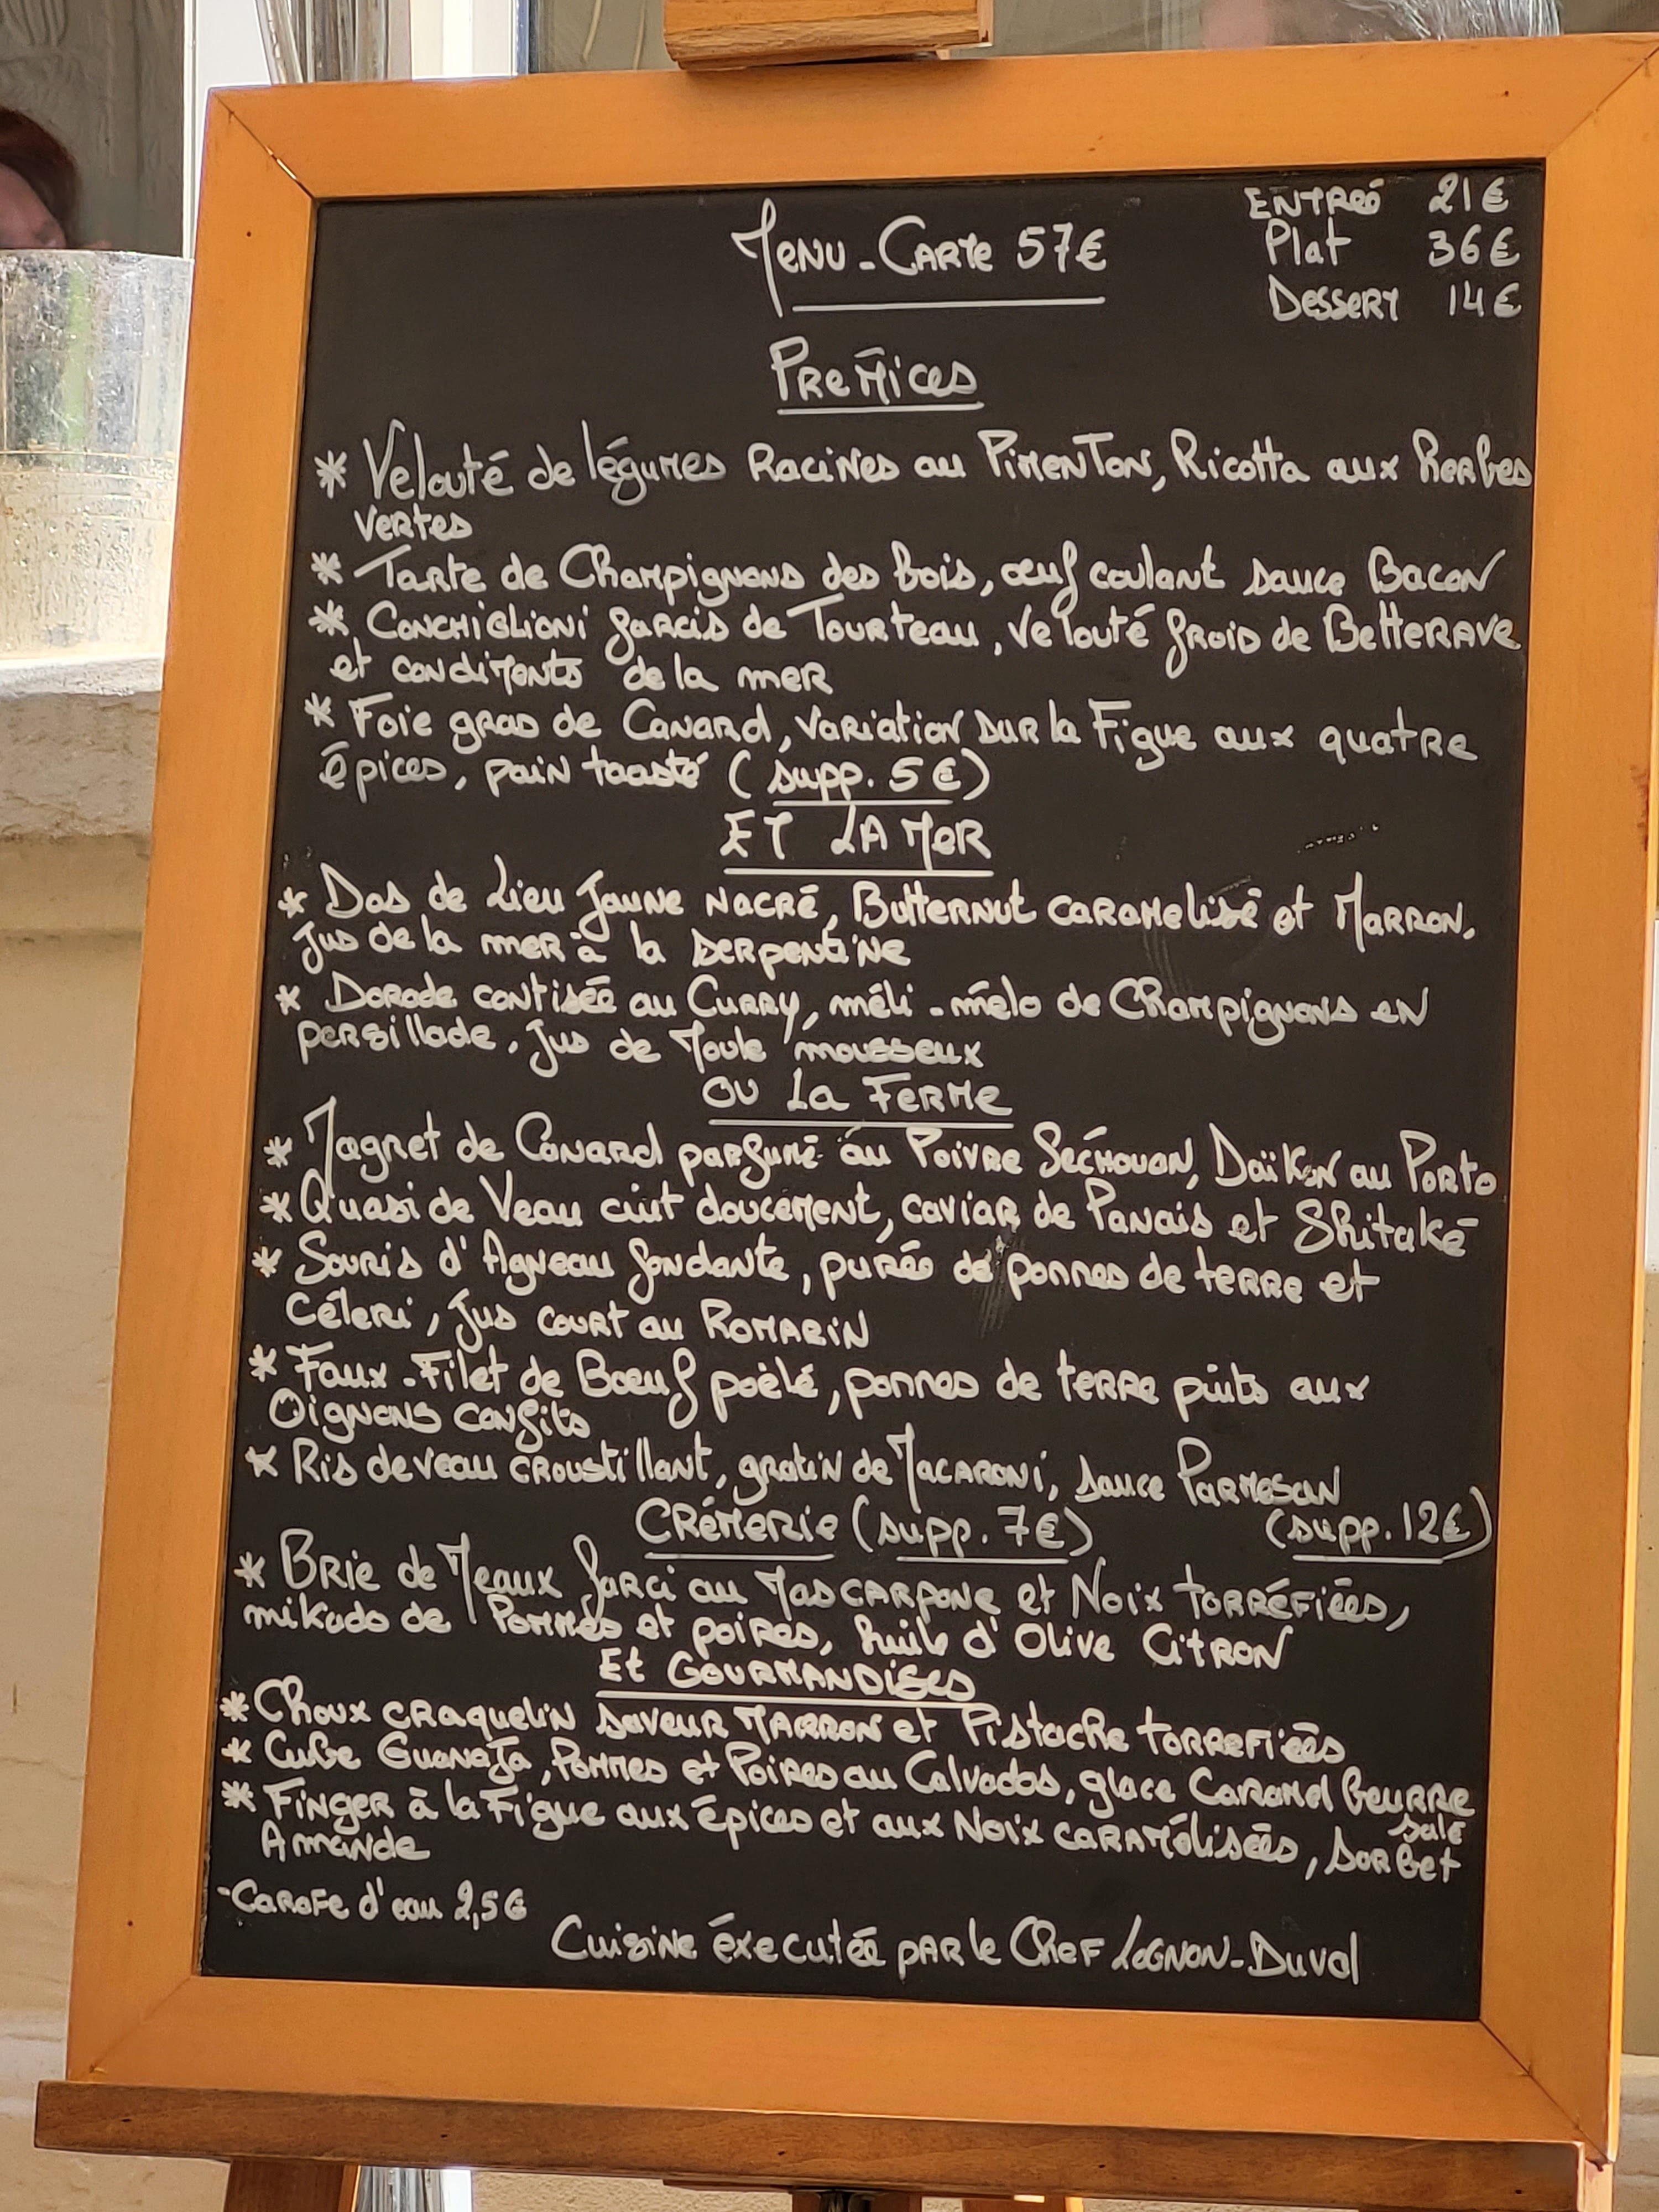 Menu-Carte 57€
Entreé 21€
Plat 36€
Dessert 14€
Prémices
* Velouté de légumes Racines au Pimenton, Ricotta aux herbes
vertes
* Tarte de Champignons des bois, œuf coulant sauce Bacon
* Conchiglioni farcis de Tourteau, velouté froid de Betterave
et condiments de la mer
* Foie gras de Canard, variation sur la Figue aux quatre
épices, pain toasté (supp. 5€)
ET LA MER
* Dos de Lieu Jaune Nacré, Butternut caramelisé et Marron,
jus de la mer à la serpentine
* Dorade contisée au Curry, méli-mélo de Champignons en
persillade, jus de Moule mousseux
OU La Ferme
* Magret de Canard parfumé au Poivre Séchouan, Daïkon au Porto
* Quasi de Veau ciut doucement, caviar de Panais et Shitaké
* Souris d'Agneau fondante, purée de pommes de terre et
Céleri, jus court au Romarin
* Faux-Filet de Bœuf poêlé, pommes de terre piuts aux
Oignons confits
* Ris de veau croustillant, gratin de Macaroni, sauce Parmesan
Crémerie (supp. 7€) (supp. 12€)
* Brie de Meaux farci au Mascarpone et Noix torréfiées,
mikado de Pommes et poires, huile d'Olive Citron
Et Gourmandises
* Choux craquelin saveur Marron et Pistache torrefiées
* Cube Guanaja, Pommes et Poires au Calvados, glace Caramel beurre
salé
* Finger à la Figue aux épices et aux Noix caramélisées, sorbet
Amande
-Carafe d'eau 2,5€
Cuisine éxecutée par le Chef Lognon-Duval